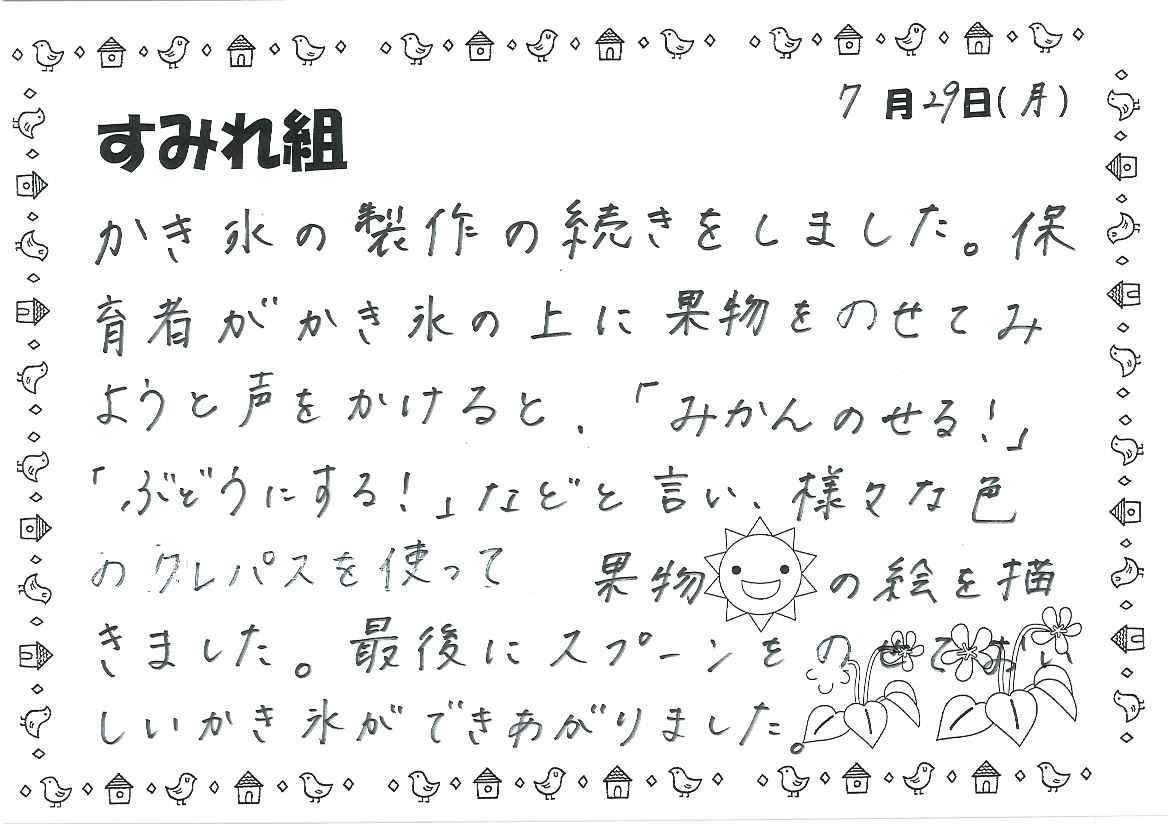 7月29日(月)
すみれ組
かき氷の製作の続きをしました。保
育者がかき氷の上に果物をのせてみ
ようと声をかけると、「みかんのせる!」
「ぶどうにする!」などと言い、様々な色
のクレパスを使って 果物の絵を描
きました。最後にスプーンをのせておい
しいかき氷ができあがりました。